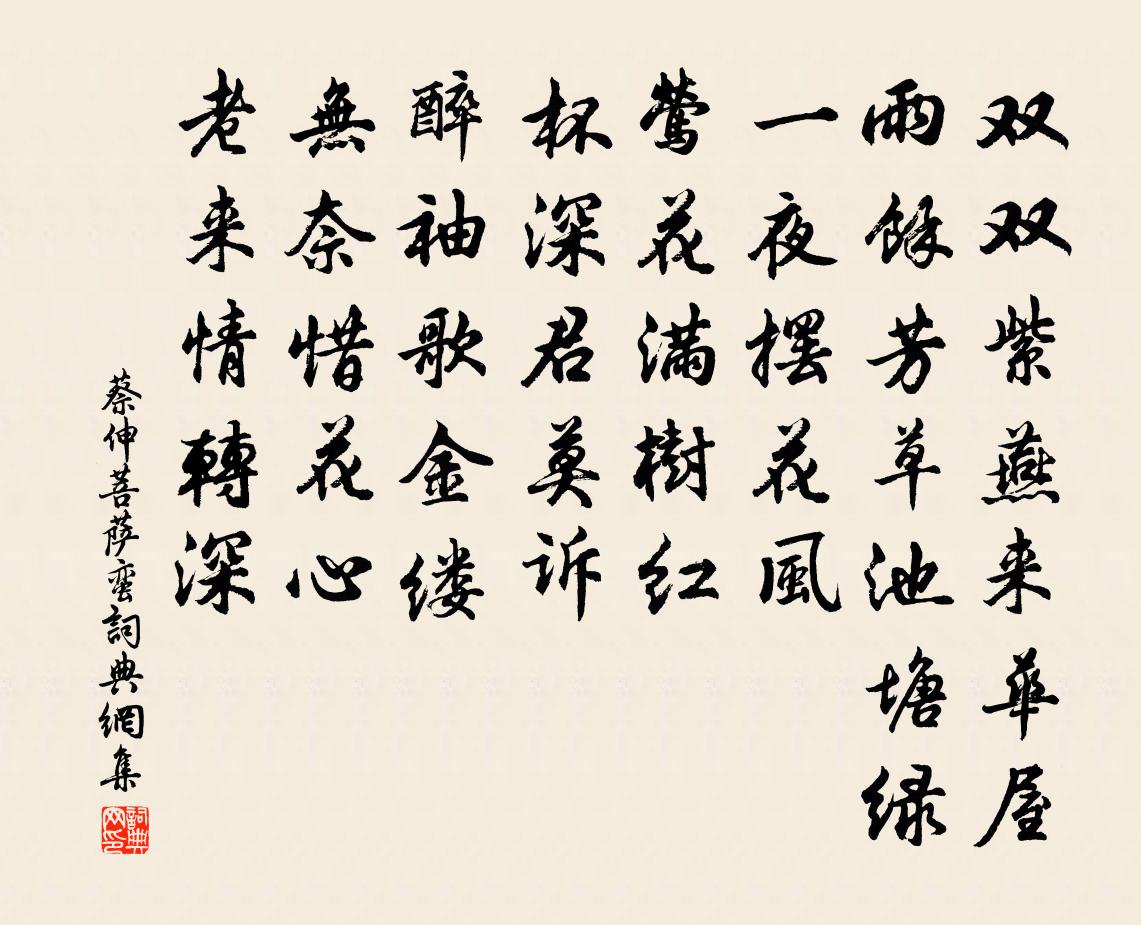 双双紫燕来華屋
雨餘芳草池塘绿
一夜摆花風
莺花满樹红
杯深君莫诉
醉袖歌金缕
無奈惜花心
老来情轉深
蔡伸菩萨蛮詞典網集
詞典网印